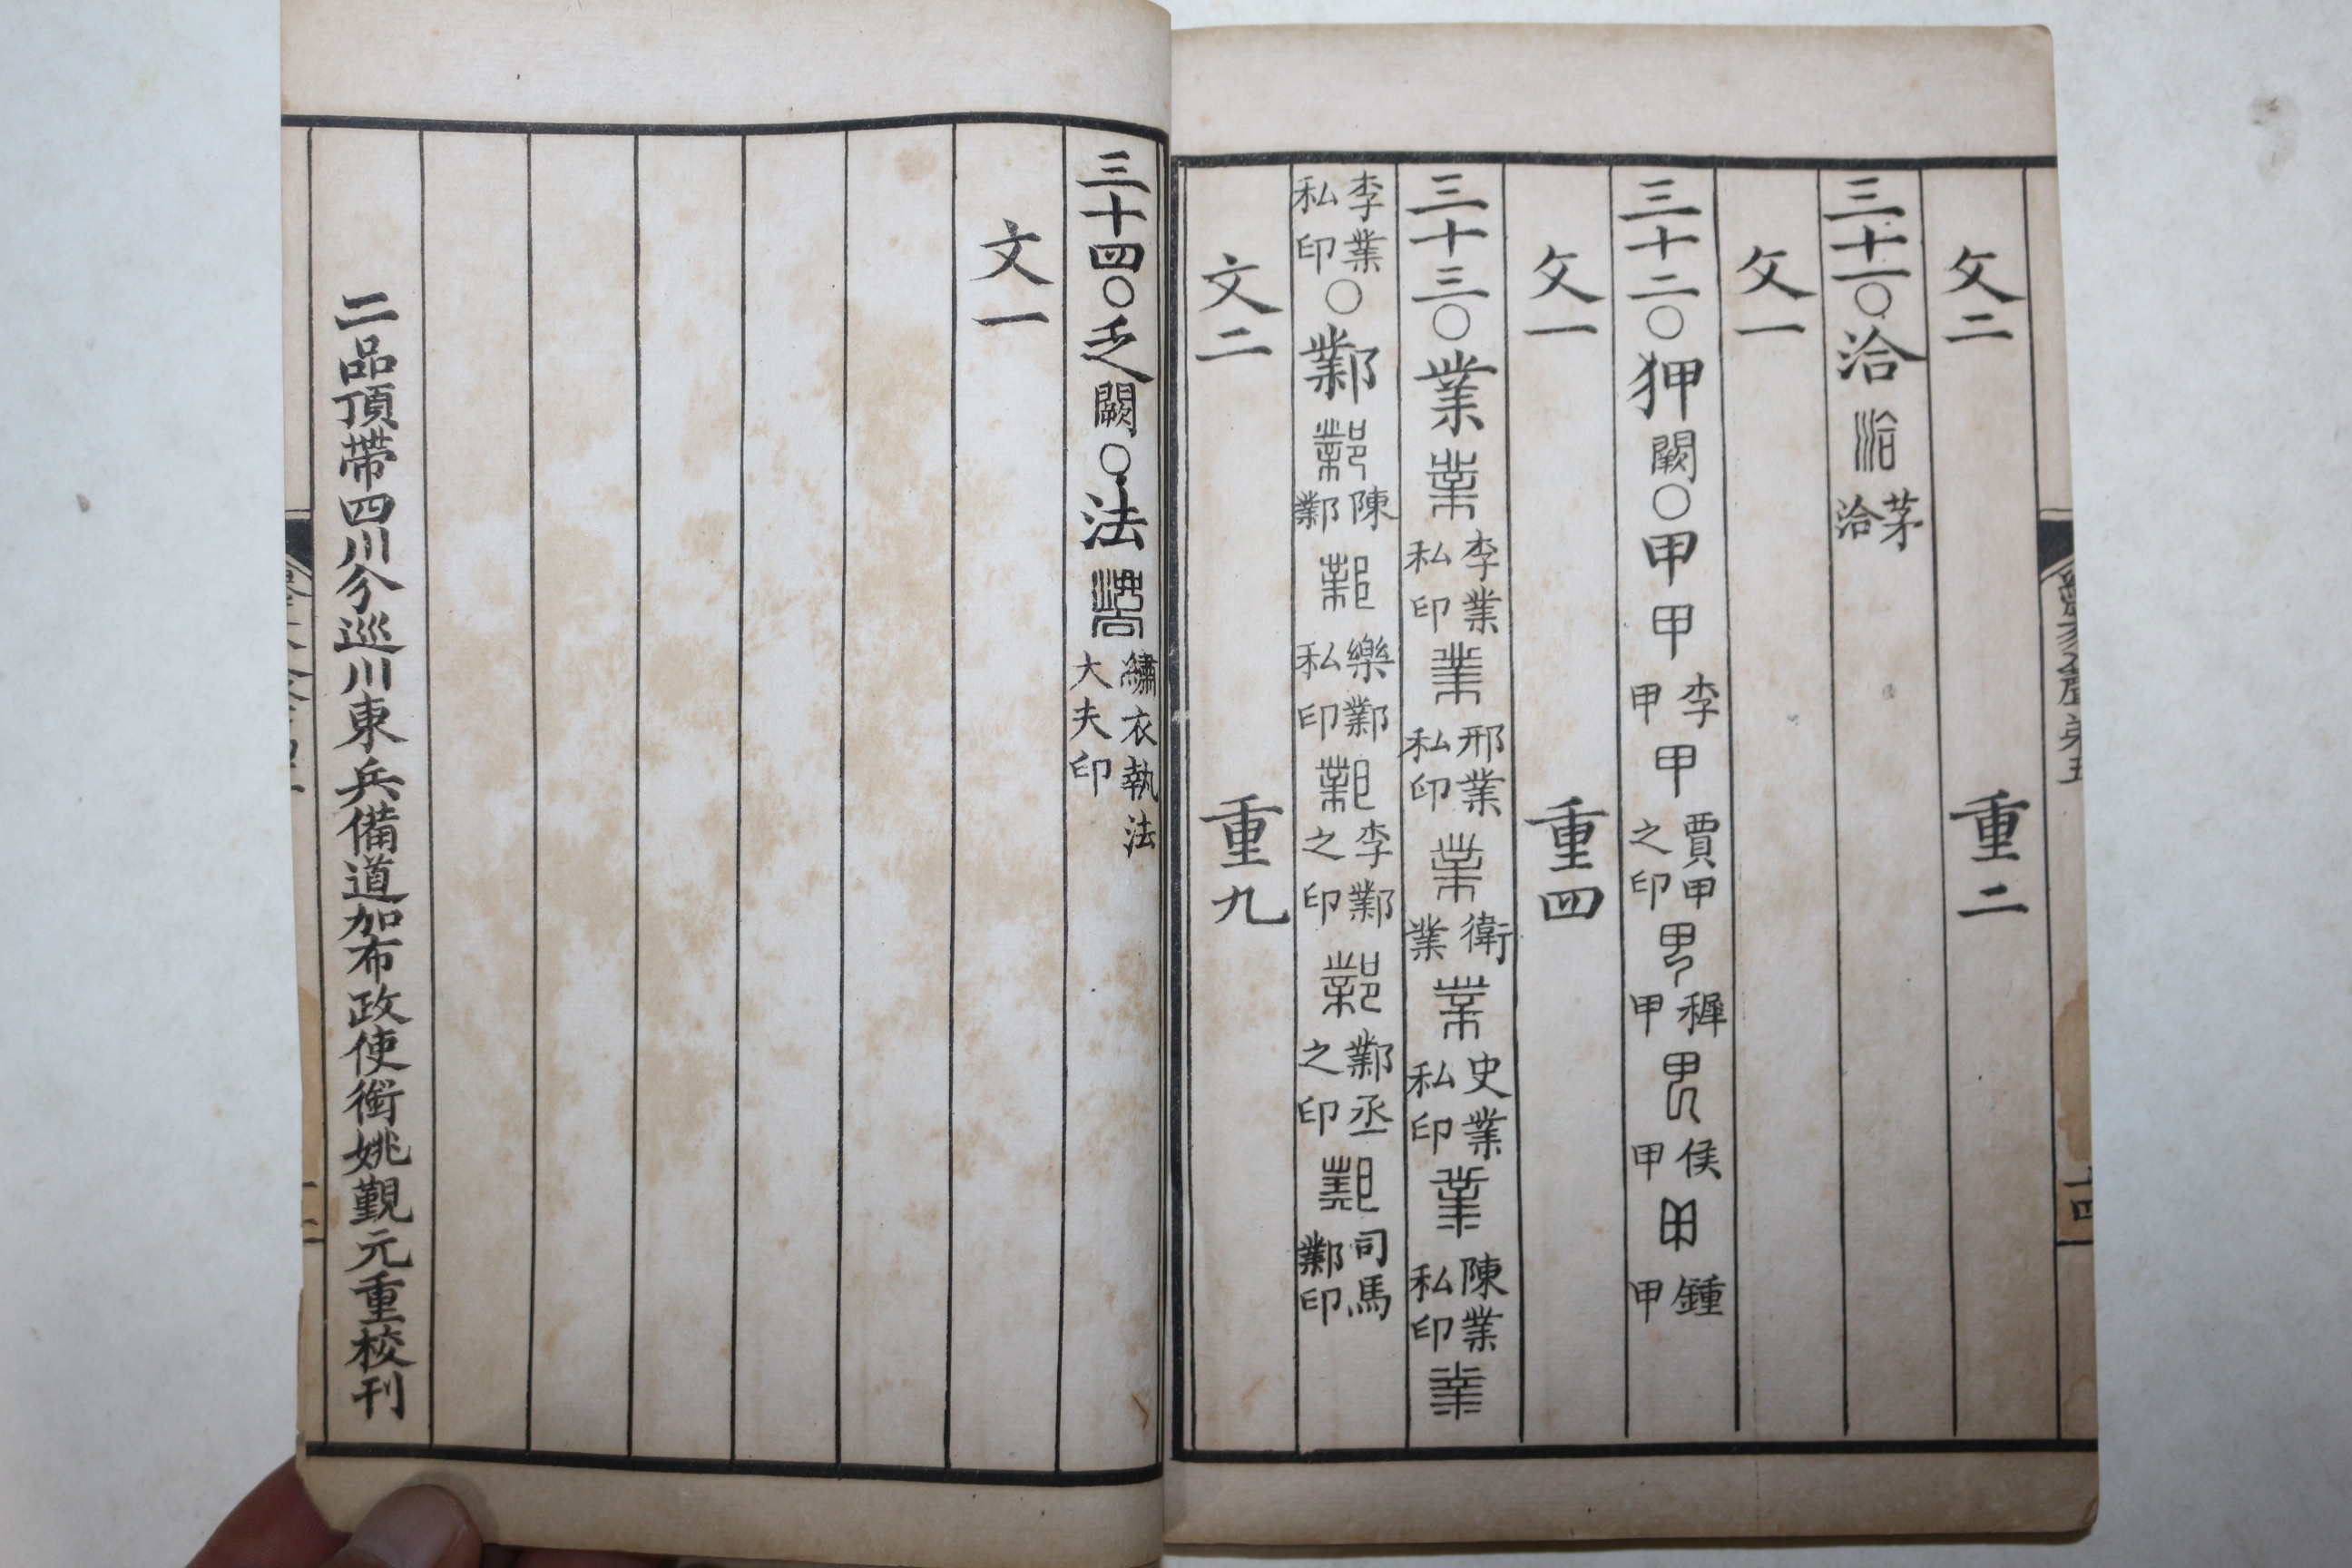 文二　重二
三十一〇洽洽茅洽
文一
三十二〇狎闕〇甲甲李甲甲賈甲之印甲穉甲甲侯甲甲鍾甲
文一　重四
三十三〇業業李業私印業邢業私印業衛業業史業私印業陳業私印業
李業私印〇鄴鄴陳鄴鄴樂鄴私印鄴李鄴之印鄴鄴丞之印鄴司馬鄴印
文二　重九
三十四〇乏闕〇法法繡衣執法大夫印
文一
二品頂帶四川分巡川東兵備道加布政使銜姚覲元重校刊